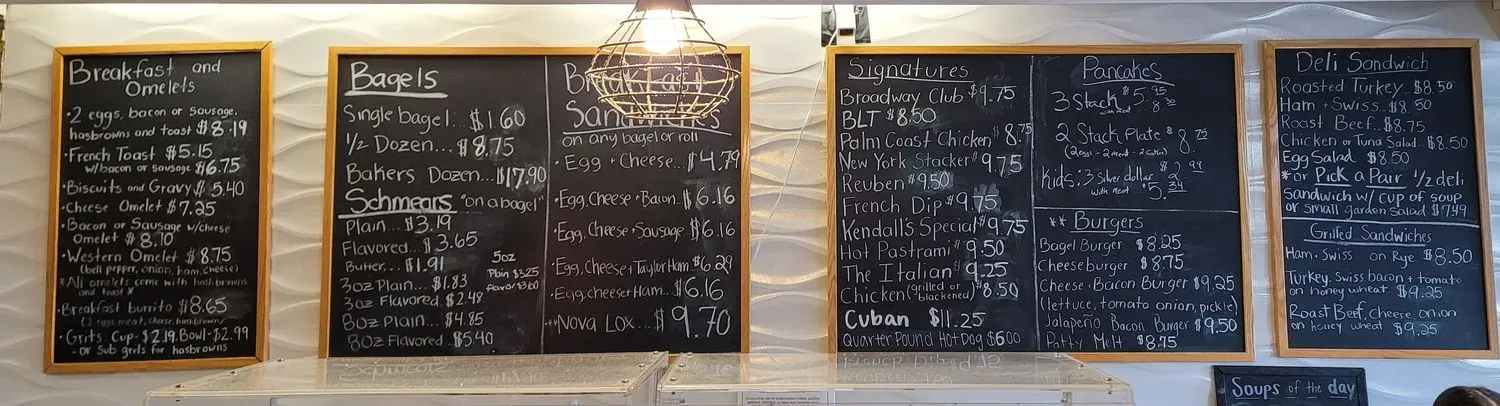 Breakfast and
Omelets
•2 eggs, bacon or Sausage,
hasbrowns and toast $8.19
•French Toast $5.15
w/bacon or sausage $6.75
•Biscuits and Gravy $5.40
•Cheese Omelet $7.25
•Bacon or Sausage w/cheese
Omelet $8.10
•Western Omelet $8.75
(bell pepper, onion, ham, cheese)
*All omelets come with hashbrowns
and toast*
•Breakfast burrito $8.65
(2 eggs, meat, cheese, hashbrowns)
•Grits Cup-$2.19, Bowl-$2.99
-or Sub grits for hasbrowns
Bagels
Single bagel...$1.60
1/2 Dozen...$8.75
Bakers Dozen...$17.90
Schmears "on a bagel"
Plain...$3.19
Flavored...$3.65
Butter...$1.91
3oz Plain...$1.83
3oz Flavored.$2.48
8oz Plain...$4.85
8oz Flavored $5.40
5oz
Plain $3.25
flavor $3.60
Breakfast
Sandwiches
on any bagel or roll
•Egg + Cheese...$4.79
•Egg, Cheese + Bacon...$6.16
•Egg, Cheese + Sausage..$6.16
•Egg, Cheese + Taylor Ham.$6.29
•Egg, cheese + Ham...$6.16
**Nova Lox...$9.70
Signatures
Broadway Club $9.75
BLT $8.50
Palm Coast Chicken $8.75
New York Stacker 9.75
Reuben $9.50
French Dip $9.75
Kendall's Special $9.75
Hot Pastrami $9.50
The Italian $9.25
Chicken (grilled or blackened) $8.50
Cuban $11.25
Quarter Pound Hot Dog $6.00
Pancakes
3 Stack $5.95
with meat
2 Stack Plate $8.75
(2 eggs - 2 meat - 2 cakes)
Kids: 3 Silver dollar $2.99
with meat $5.34
** Burgers
Bagel Burger $8.25
Cheeseburger $8.75
Cheese + Bacon Burger $9.25
(lettuce, tomato onion, pickle)
Jalapeño Bacon Burger $9.50
Patty Melt $8.75
Deli Sandwich
Roasted Turkey..$8.50
Ham + Swiss...$8.50
Roast Beef...$8.75
Chicken or Tuna Salad...$8.50
Egg Salad $8.50
*or Pick a Pair 1/2 deli
sandwich w/ cup of soup
or small garden salad $7.49
Grilled Sandwiches
Ham, Swiss on Rye $8.50
Turkey, Swiss bacon + tomato
on honey wheat $9.25
Roast Beef, Cheese onion
on honey wheat $9.25
Soups of the day